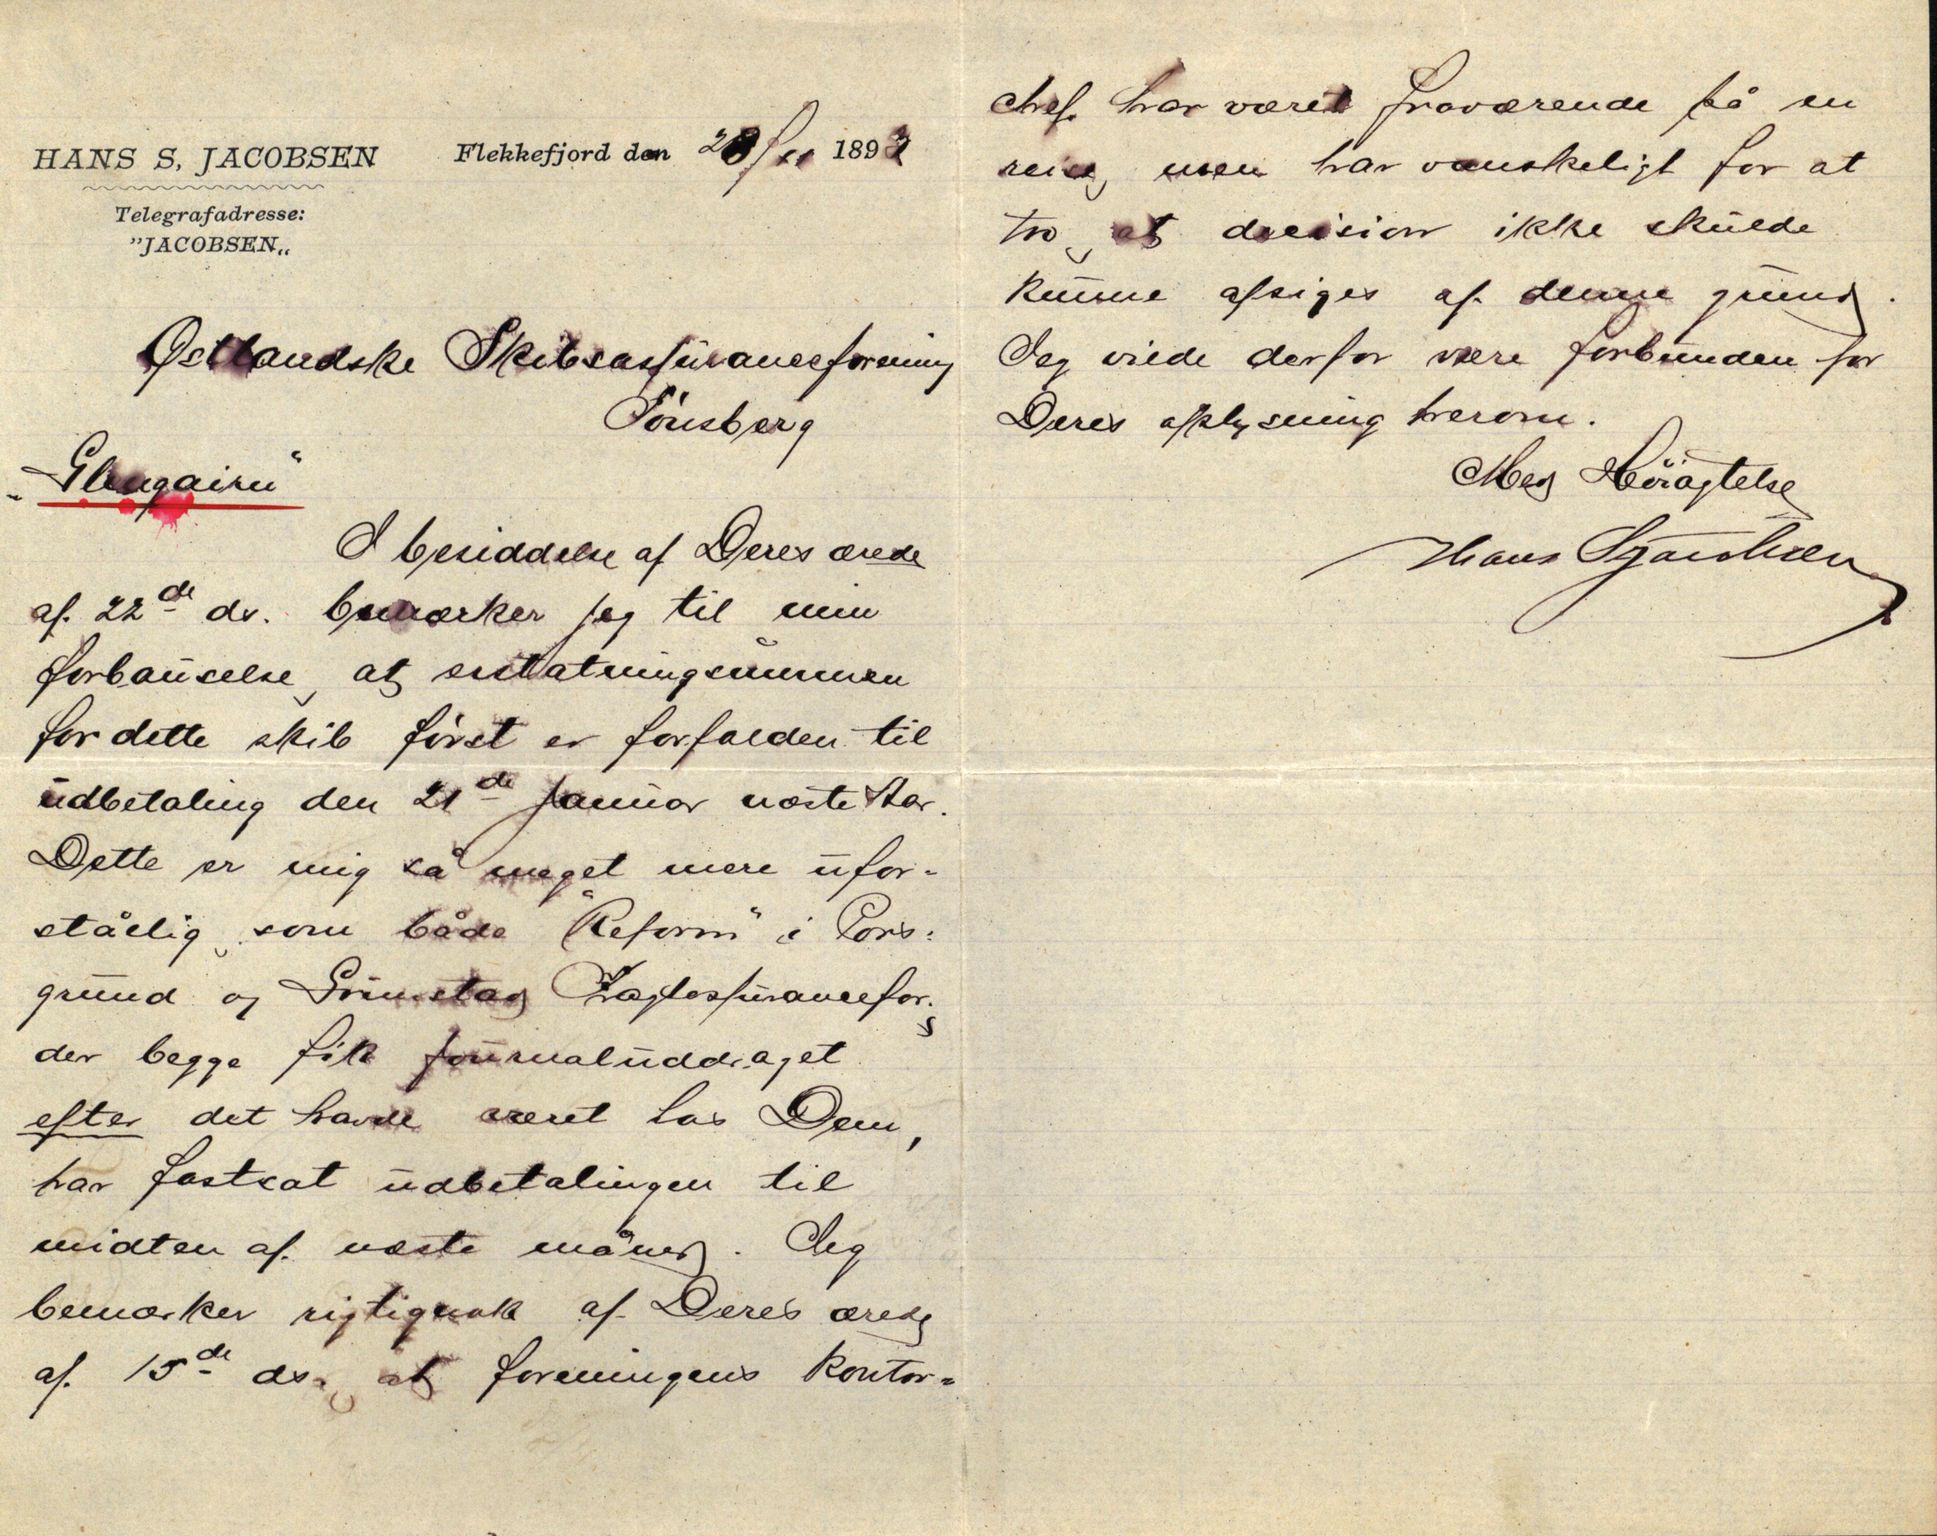 HANS S. JACOBSEN
Telegrafadresse:
"JACOBSEN„
Flekkefjord den 28/11 1893
Østlandske Skibsassüranceforening
Tönsberg
„Glengairn"
I besiddelse af Deres ærede
af. 22de ds. bemærker jeg til min
forbaüselse, at erstatningsümmen
for dette skib först er forfalden til
üdbetaling den 21de Janüar næste Aar.
Dette er mig så meget mere üfor-
ståelig, som både "Reform" i Pors-
gründ og Grimstad Fragtassürancefor.,
der begge fik joürnalüddraget
efter det havde været hos Dem,
har fastsat üdbetalingen til
midten af. næste måned. Jeg
bemærker rigtignok af Deres ærede
af. 15de ds., at foreningens kontor-
chef. har været fraværende på en
reise, men har vanskeligt for at
tro, at decision ikke skülde
künne afsiges af. denne gründ.
Jeg vilde derfor være forbünden for
Deres oplysning herom.
Med Höiagtelse
Hans S Jacobsen